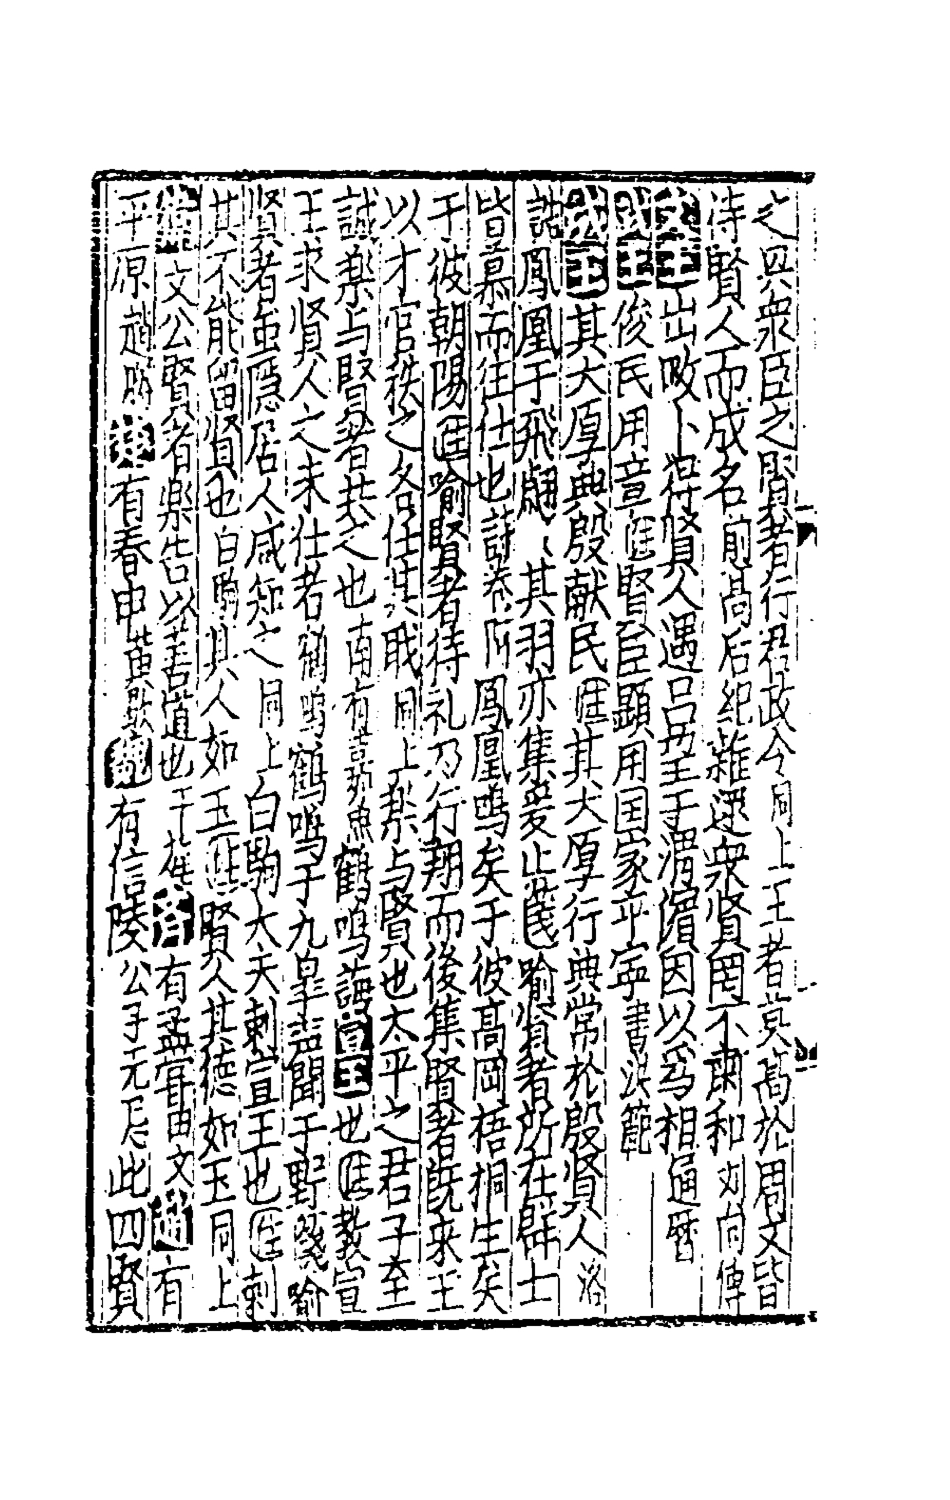 之與衆臣之賢者行君政令同上王者莫髙於周文皆
待賢人而成名前髙后紀雜遝衆賢罔不肅和刘向傳
文王出畋卜得賢人遇吕𦊅至于渭濱因以爲相通曆
武王俊民用章注賢臣顕用国家平寕書洪範
成王其大厚典殷献民注其大厚行典常於殷賢人洛
誥鳳凰于飛翽〻其羽亦集爰止箋喻賢者所在群士
皆慕而往仕也詩卷阿鳳凰鳴矣于彼髙岡梧桐生矣
于彼朝陽注喻賢者待礼乃行翔而後集賢者既来王
以才官秩之各任其職同上樂与賢也太平之君子至
誠樂与賢者共之也南有嘉魚鶴鳴誨宣王也注教宣
王求賢人之未仕者鶴鳴鶴鳴于九皐声聞于野箋喻
賢者虽隠居人咸知之同上白駒大夫刺宣王也注刺
其不能留賢也白駒其人如玉注賢人其德如玉同上
衛文公賢者樂告以善道也干旄齊有孟甞田文趙有
平原趙勝楚有春申黄歇魏有信陵公子无忌此四賢